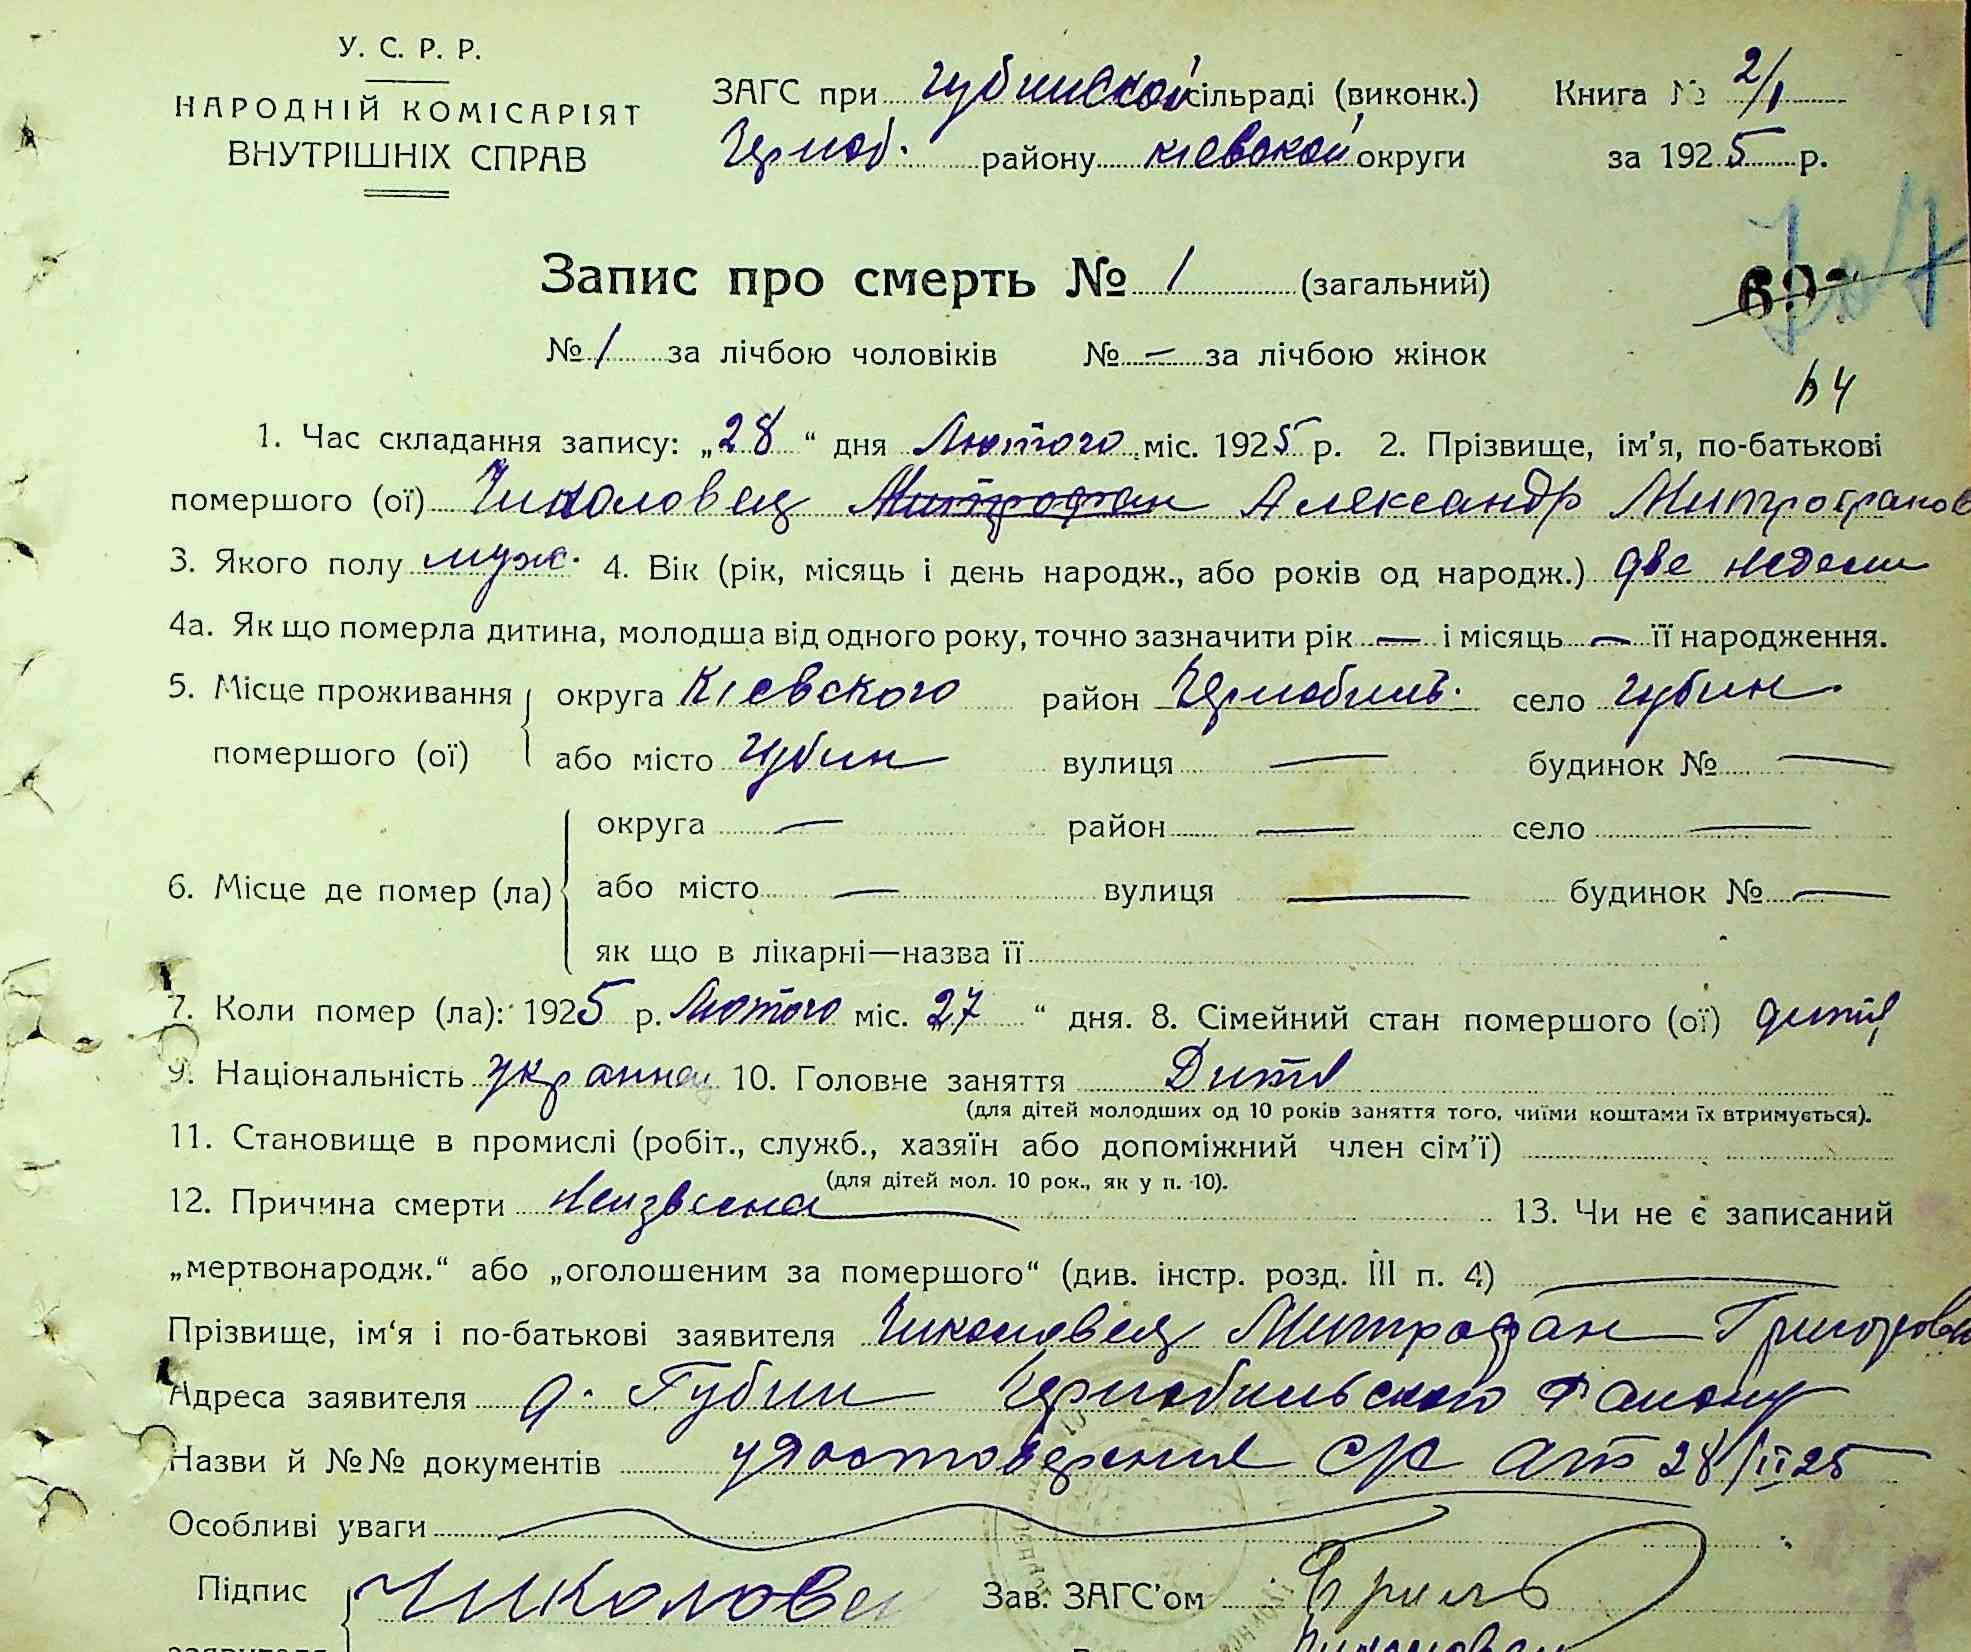 У. С. Р. Р.
НАРОДНІЙ КОМІСАРІЯТ
ВНУТРІШНІХ СПРАВ
ЗАГС при Губинской сільраді (виконк.) Книга № 2/1
Черноб. району Кіевской округи за 1925 р.
Запис про смерть № 1 (загальний)
№ 1 за лічбою чоловіків № — за лічбою жінок
1. Час складання запису: „28“ дня Лютого міс. 1925 р. 2. Прізвище, ім'я, по-батькові
помершого (ої) Чиколовец Митрофан Александр Митрофанов
3. Якого полу муж. 4. Вік (рік, місяць і день народж., або років од народж.) две недели
4а. Як що померла дитина, молодша від одного року, точно зазначити рік — і місяць — її народження.
5. Місце проживання округа Кіевского район Чернобиль. село Губин
помершого (ої) або місто Губин вулиця — будинок № —
округа — район — село —
6. Місце де помер (ла) або місто — вулиця — будинок № —
як що в лікарні—назва її
7. Коли помер (ла): 1925 р. Лютого міс. 27 “ дня. 8. Сімейний стан помершого (ої) дитя
9. Національність 10. Головне заняття Дитя
(для дітей молодших од 10 років заняття того, чиїми коштами їх втримується).
11. Становище в промислі (робіт., служб., хазяїн або допоміжний член сім'ї)
(для дітей мол. 10 рок., як у п. 10).
12. Причина смерти 13. Чи не є записаний
„мертвонародж.“ або „оголошеним за помершого“ (див. інстр. розд. III п. 4) —
Прізвище, ім'я і по-батькові заявителя Чиколовец Митрофан
Адреса заявителя д. Губин Чернобильского
Назви й №№ документів ср 28/II 25
Особливі уваги
Підпис Чиколове Зав. ЗАГС'ом
заявителя